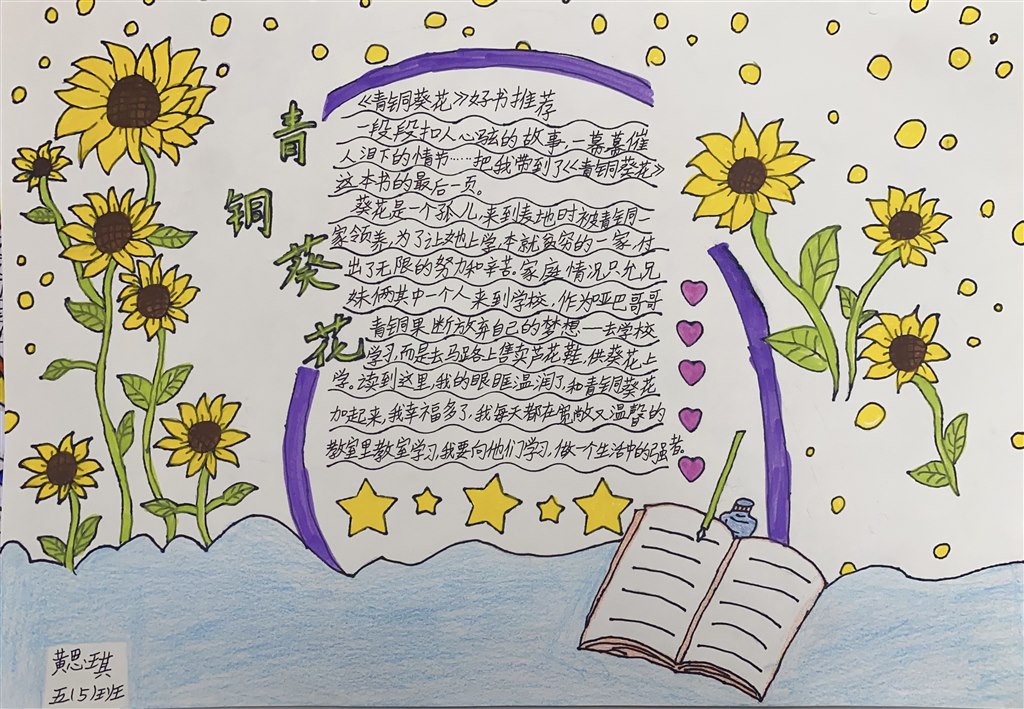 青铜葵花
《青铜葵花》好书推荐
一段段扣人心弦的故事,一幕幕催
人泪下的情节……把我带到了《青铜葵花》
这本书的最后一页。
葵花是一个孤儿,来到麦地时被青铜一
家领养,为了让她上学,本就贫穷的一家,付
出了无限的努力和辛苦。家庭情况只允兄
妹俩其中一个人来到学校,作为哑巴哥哥
青铜果断放弃自己的梦想——去学校
学习,而是去马路上售卖芦花鞋,供葵花上
学。读到这里,我的眼眶温润了,和青铜葵花
加起来,我幸福多了,我每天都在宽敞又温馨的
教室里教室学习,我要向他们学习,做一个生活中的强者。
黄思琪
五(5)班